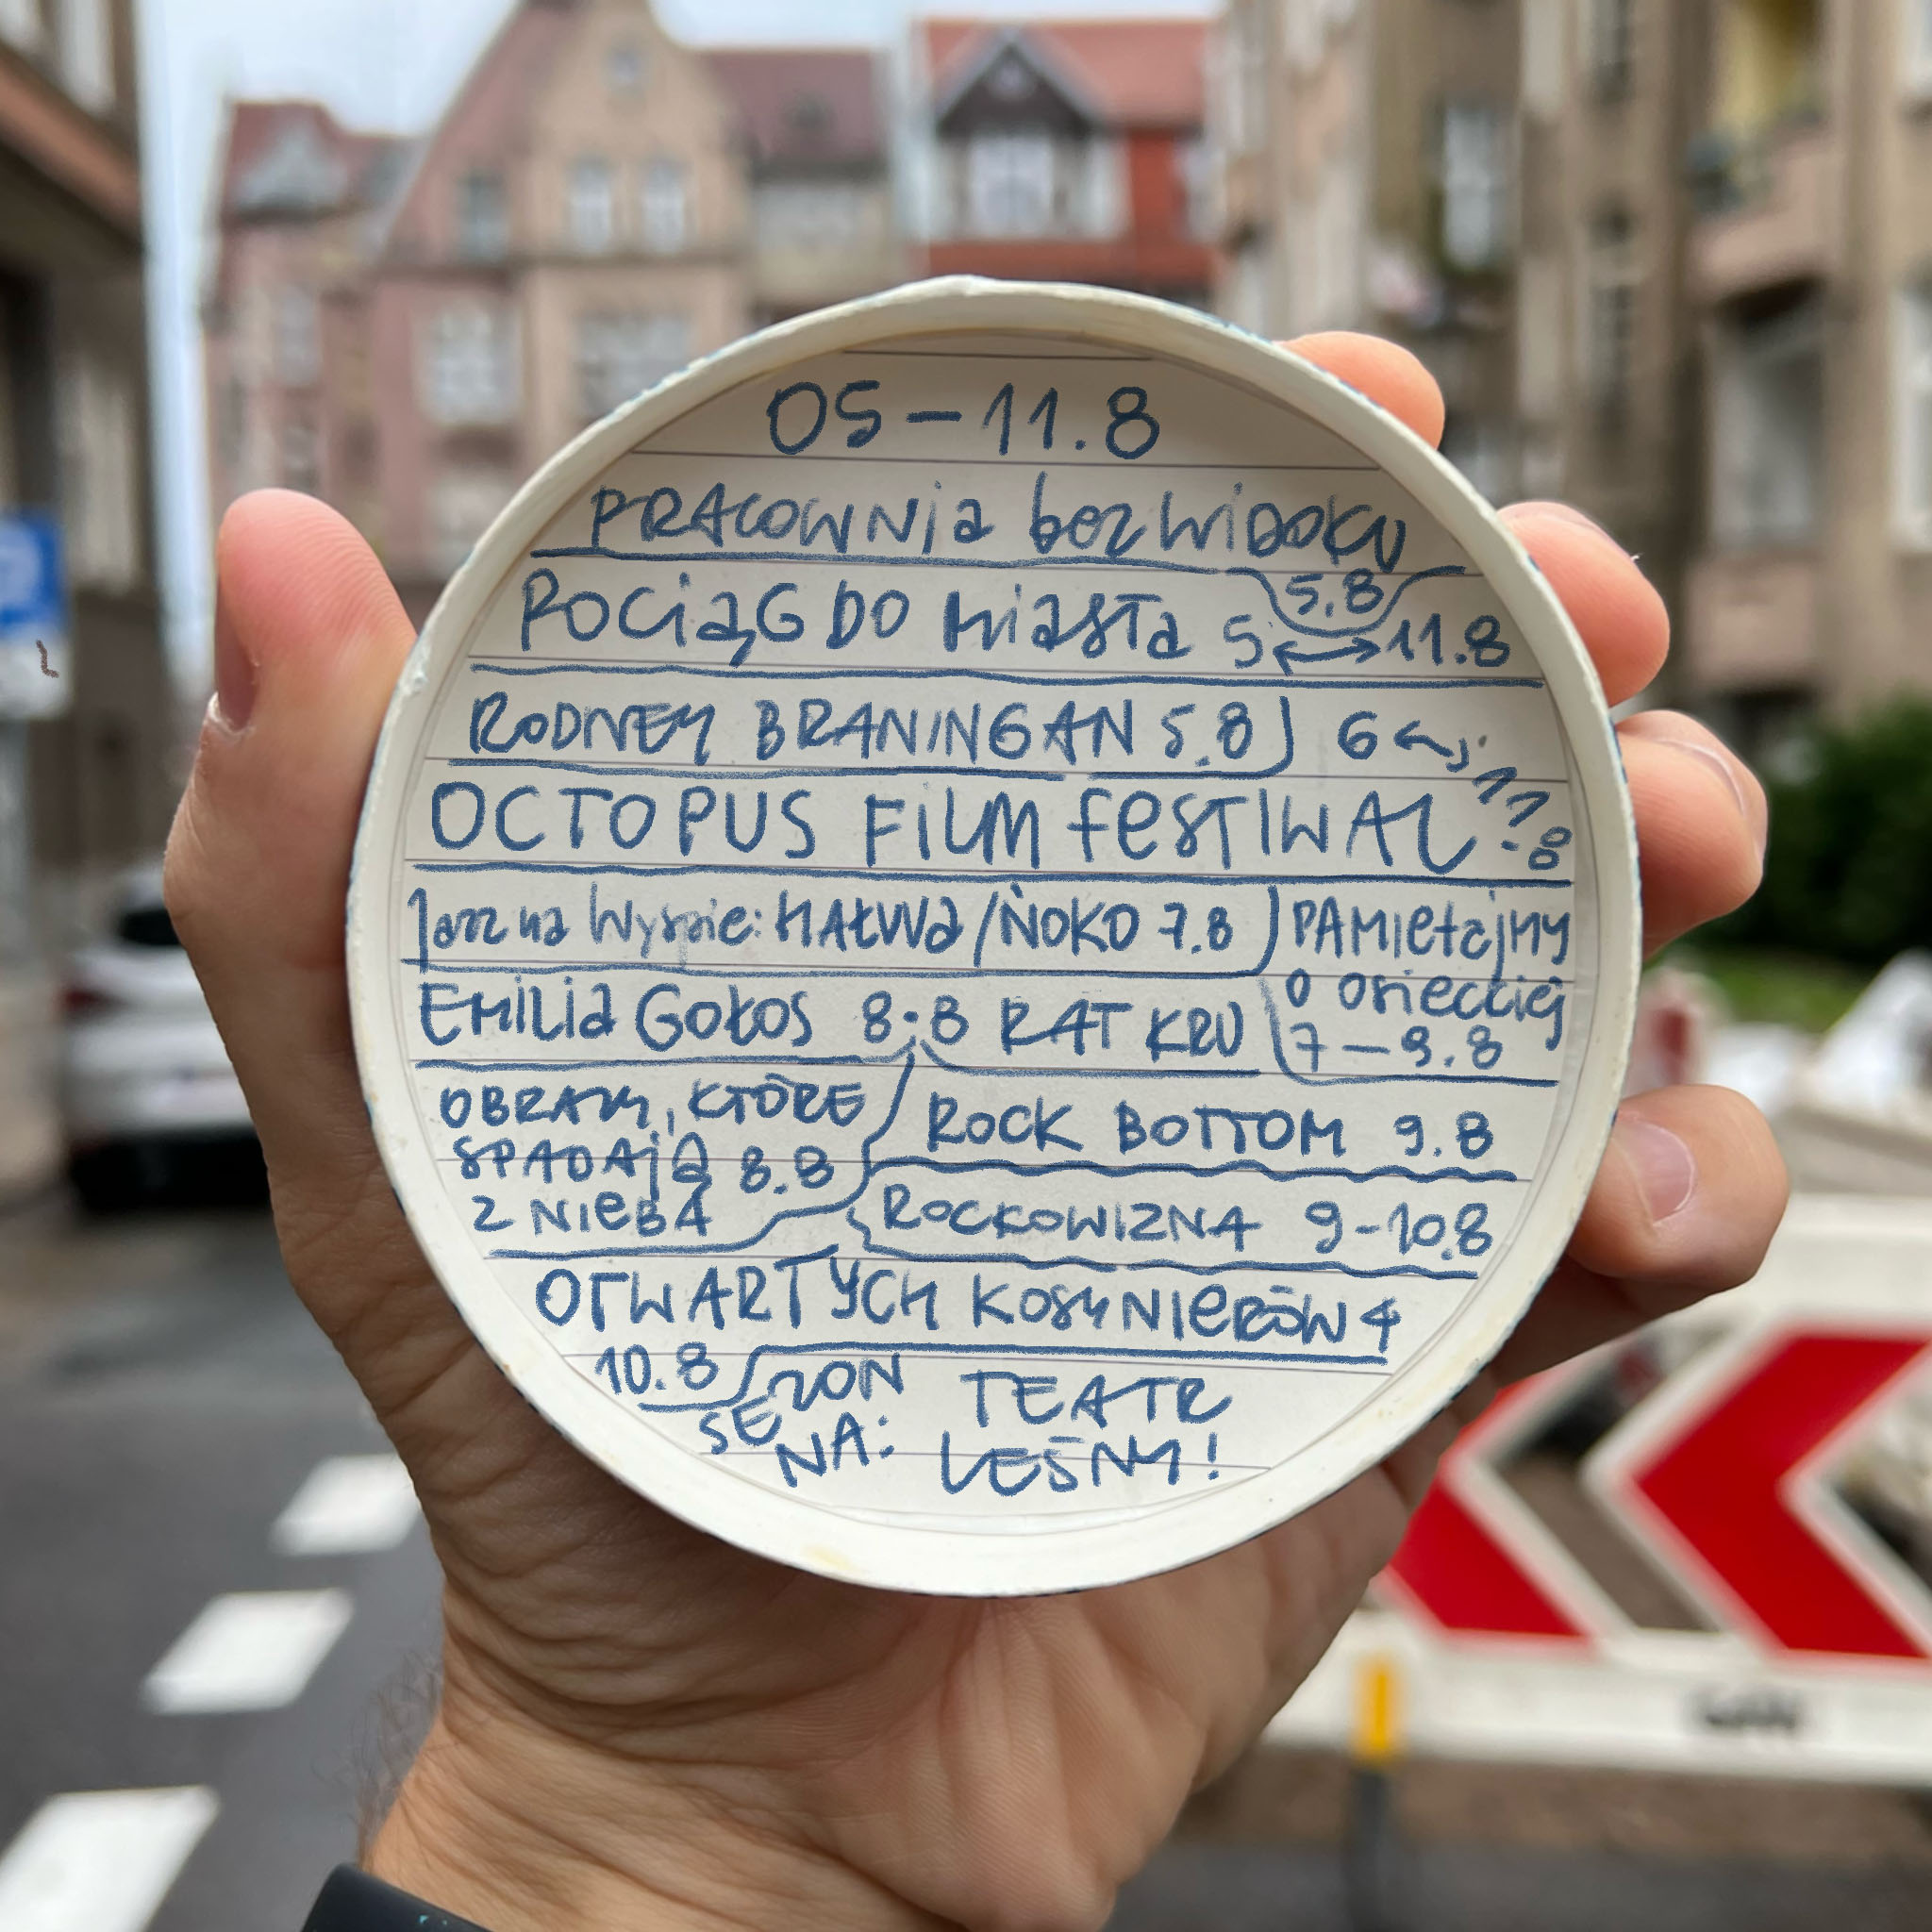 05-11.8
PRACOWNia bez WiDOKU
5.8
POCiąG DO Miasta 5 ↔ 11.8
RODNEY BRANINGAN 5.8
6 ↔ 11.8
OCTOPUS FiLM feSTIWAL
Jazz na Wyspie: MAŁWa/NOKO 7.8
PAMiętajmy
o osieckiej
7-9.8
EMiLia GOŁOS 8.8 RAT KRU
OBRAZY, KTÓRE
SPADAją 8.8
Z NiEBA
ROCK BOTTOM 9.8
ROCKOWIZNA 9-10.8
OTWARTYCH KOSYNIERÓW 4
10.8
SEZON
NA:
TEATR
LEŚNY!